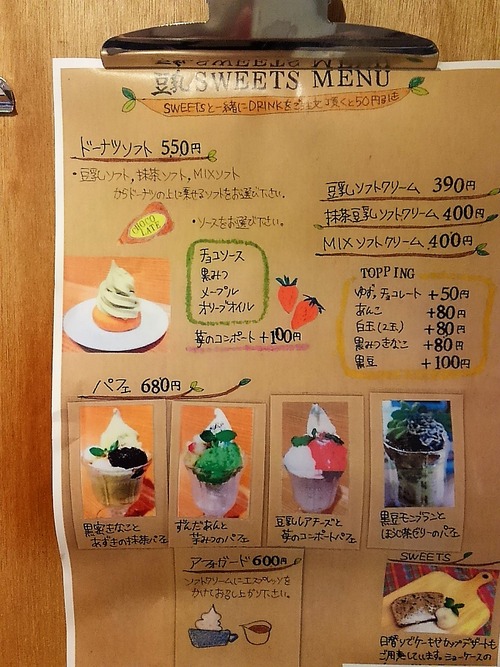 豆乳 SWEETS MENU
SWEETSと一緒にDRINKをご注文頂くと50円引き
ドーナツソフト 550円
・豆乳ソフト,抹茶ソフト,MIXソフト
からドーナツの上に乗せるソフトをお選び下さい。
chocoLATE
・ソースをお選び下さい。
チョコソース
黒みつ
メープル
オリーブオイル
苺のコンポート +100円
豆乳ソフトクリーム 390円
抹茶豆乳ソフトクリーム 400円
MIXソフトクリーム 400円
TOPPING
ゆずチョコレート +50円
あんこ +80円
白玉(2玉) +80円
黒みつきなこ +80円
黒豆 +100円
パフェ 680円
黒蜜きなこと
あずきの抹茶パフェ
ずんだあんと
黒みつのパフェ
豆乳レアチーズと
苺のコンポートパフェ
黒豆モンブランと
ほうじ茶ゼリーのパフェ
アフォガード 600円
ソフトクリームにエスプレッソを
かけてお召し上がり下さい。
SWEETS
日替りでケーキやカップデザートも
ご用意しています。ショーケースの